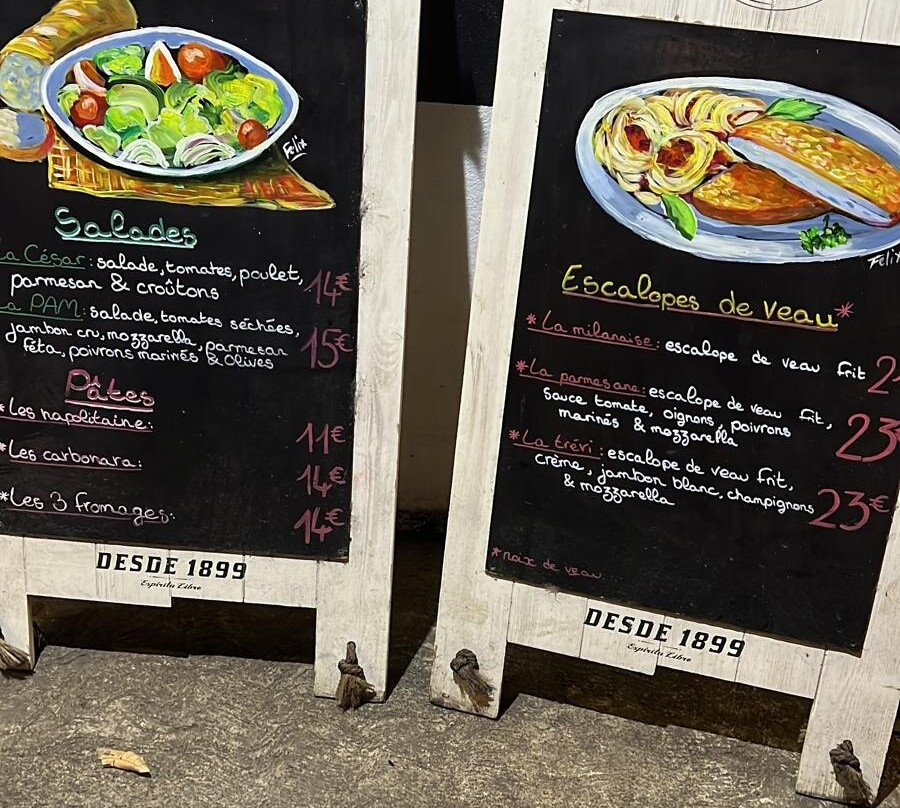 Felix
Salades
La César : salade, tomates, poulet,
parmesan & croûtons 14€
La PAM : salade, tomates séchées,
jambon cru, mozzarella, parmesan
féta, poivrons marinés & Olives 15€
Pâtes
*Les napolitaine : 11€
*Les carbonara : 14€
*Les 3 fromages : 14€
DESDE 1899
Espíritu Libre
Felix
Escalopes de veau*
*La milanaise : escalope de veau frit
*La parmesane : escalope de veau frit,
sauce tomate, oignons, poivrons
marinés & mozzarella 23
*La trévi : escalope de veau frit,
crème, jambon blanc, champignons
& mozzarella 23€
*noix de veau
DESDE 1899
Espíritu Libre